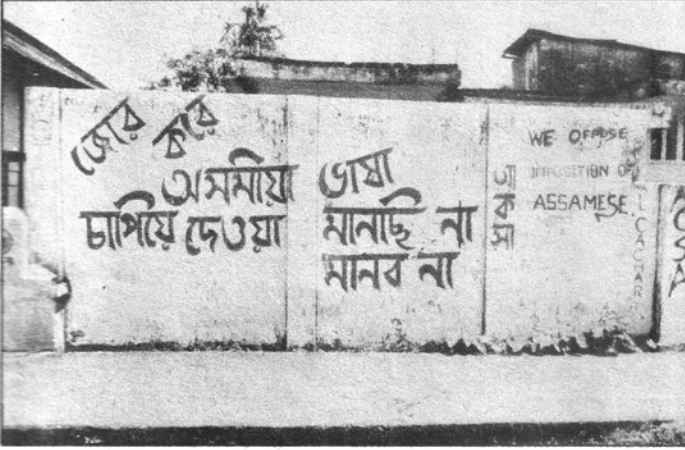 জোর করে
অসমীয়া ভাষা
চাপিয়ে দেওয়া মানছি না
মানব না
আকসা
WE OPPOSE
IMPOSITION OF
ASSAMESE.
CACHAR
ACKSA